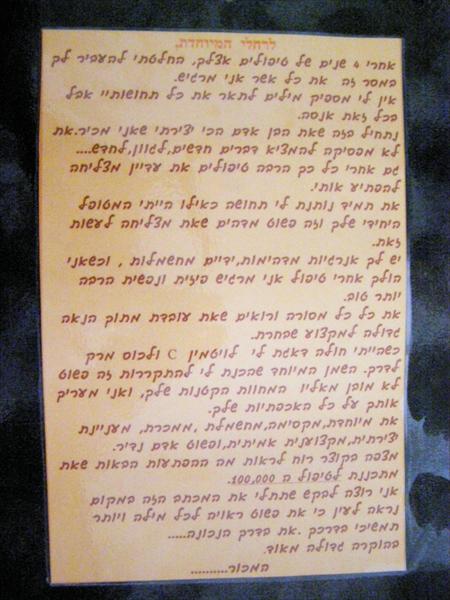 לרחלי המיוחדת,
אחרי 4 שנים של טיפולים אצלך, החלטתי להעביר לך
במסר זה את כל אשר אני מרגיש.
אין לי מספיק מילים לתאר את כל תחושותיי אבל
בכל זאת אנסה.
נתחיל בזה שאת הבן אדם הכי יצירתי שאני מכיר.את
לא מפסיקה להמציא דברים חדשים,לגוון,לחדש....
גם אחרי כל כך הרבה טיפולים את עדיין מצליחה
להפתיע אותי.
את תמיד נותנת לי תחושה כאילו הייתי המטופל
היחידי שלך וזה פשוט מדהים שאת מצליחה לעשות
זאת.
יש לך אנרגיות מדהימות,ידיים מחשמלות , וכשאני
הולך אחרי טיפול אני מרגיש פיזית ונפשית הרבה
יותר טוב.
את כל כך מסורה ורואים שאת עובדת מתוך הנאה
גדולה למקצוע שבחרת.
כשהייתי חולה דאגת לי לויטמין C ולכוס מרק
לדרך. השמן המיוחד שהכנת לי להתקררות זה פשוט
לא מובן מאליו המחוות הקטנות שלך, ואני מעריך
אותך על כל האכפתיות שלך.
את מיוחדת,מקסימה,מחשמלת ,ממכרת, מעניינת
יצירתית,מקצוענית אמיתית,ופשוט אדם נדיר.
מצפה בקוצר רוח לראות מה ההפתעות הבאות שאת
מתכננת לטיפול ה 100,000.
אני רוצה לבקש שתתלי את המכתב הזה במקום
נראה לעין כי את פשוט ראויה לכל מילה ויותר
תמשיכי בדרכך .את בדרך הנכונה.....
בהוקרה גדולה מאוד.
המכור..........